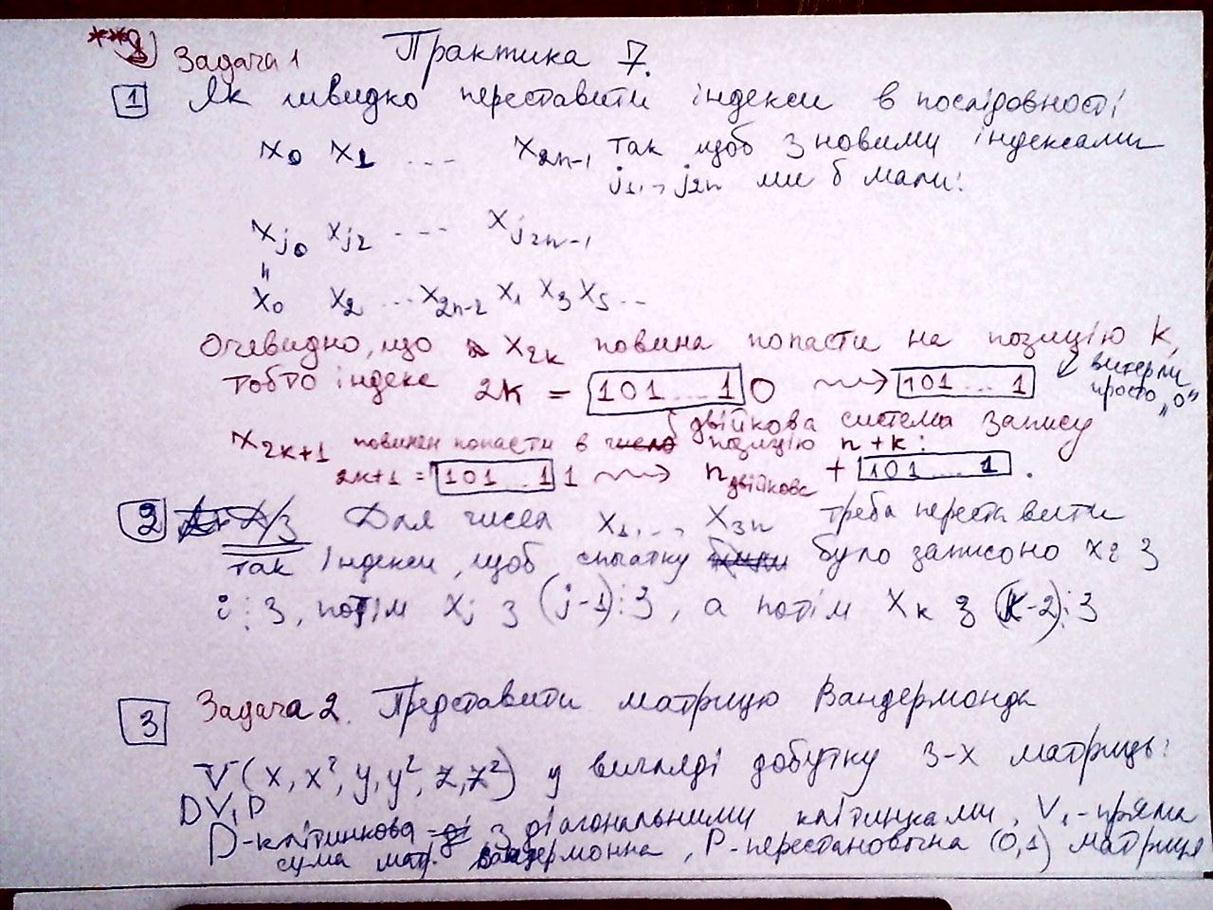 **8) Задача 1 Практика 7.
1 Як швидко переставити індекси в послідовності
x₀ x₁ ... x₂ₙ₋₁ так щоб з новими індексами
j₁,..., j₂ₙ ми б мали:
x_{j₀} x_{j₂} ... x_{j₂ₙ₋₁}
"
x₀ x₂ ... x₂ₙ₋₂ x₁ x₃ x₅ ...
Очевидно, що x₂ₖ повина попасти на позицію k,
тобто індекс 2k = 101...1 0 ⇝ 101...1 ↙ витерли просто „0"
двійкова система запису
x₂ₖ₊₁ повинен попасти в позицію n+k:
2k+1 = 101...1 1 ⇝ n двійкове + 101...1 .
2 Для чисел x₁,..., x₃ₙ треба переставити
так індекси, щоб спочатку було записоно xᵢ з
i⋮3, потім xⱼ з (j-1)⋮3, а потім xₖ з (k-2)⋮3
3 Задача 2. Представити матрицю Вандермонда
V(x, x², y, y², z, z²) у вигляді добутку 3-х матриць:
DV₁P
D-клітинкова з діагональними клітинками, V₁-пряма
сума матр. Вандермонна, P-перестановочна (0,1) матриця